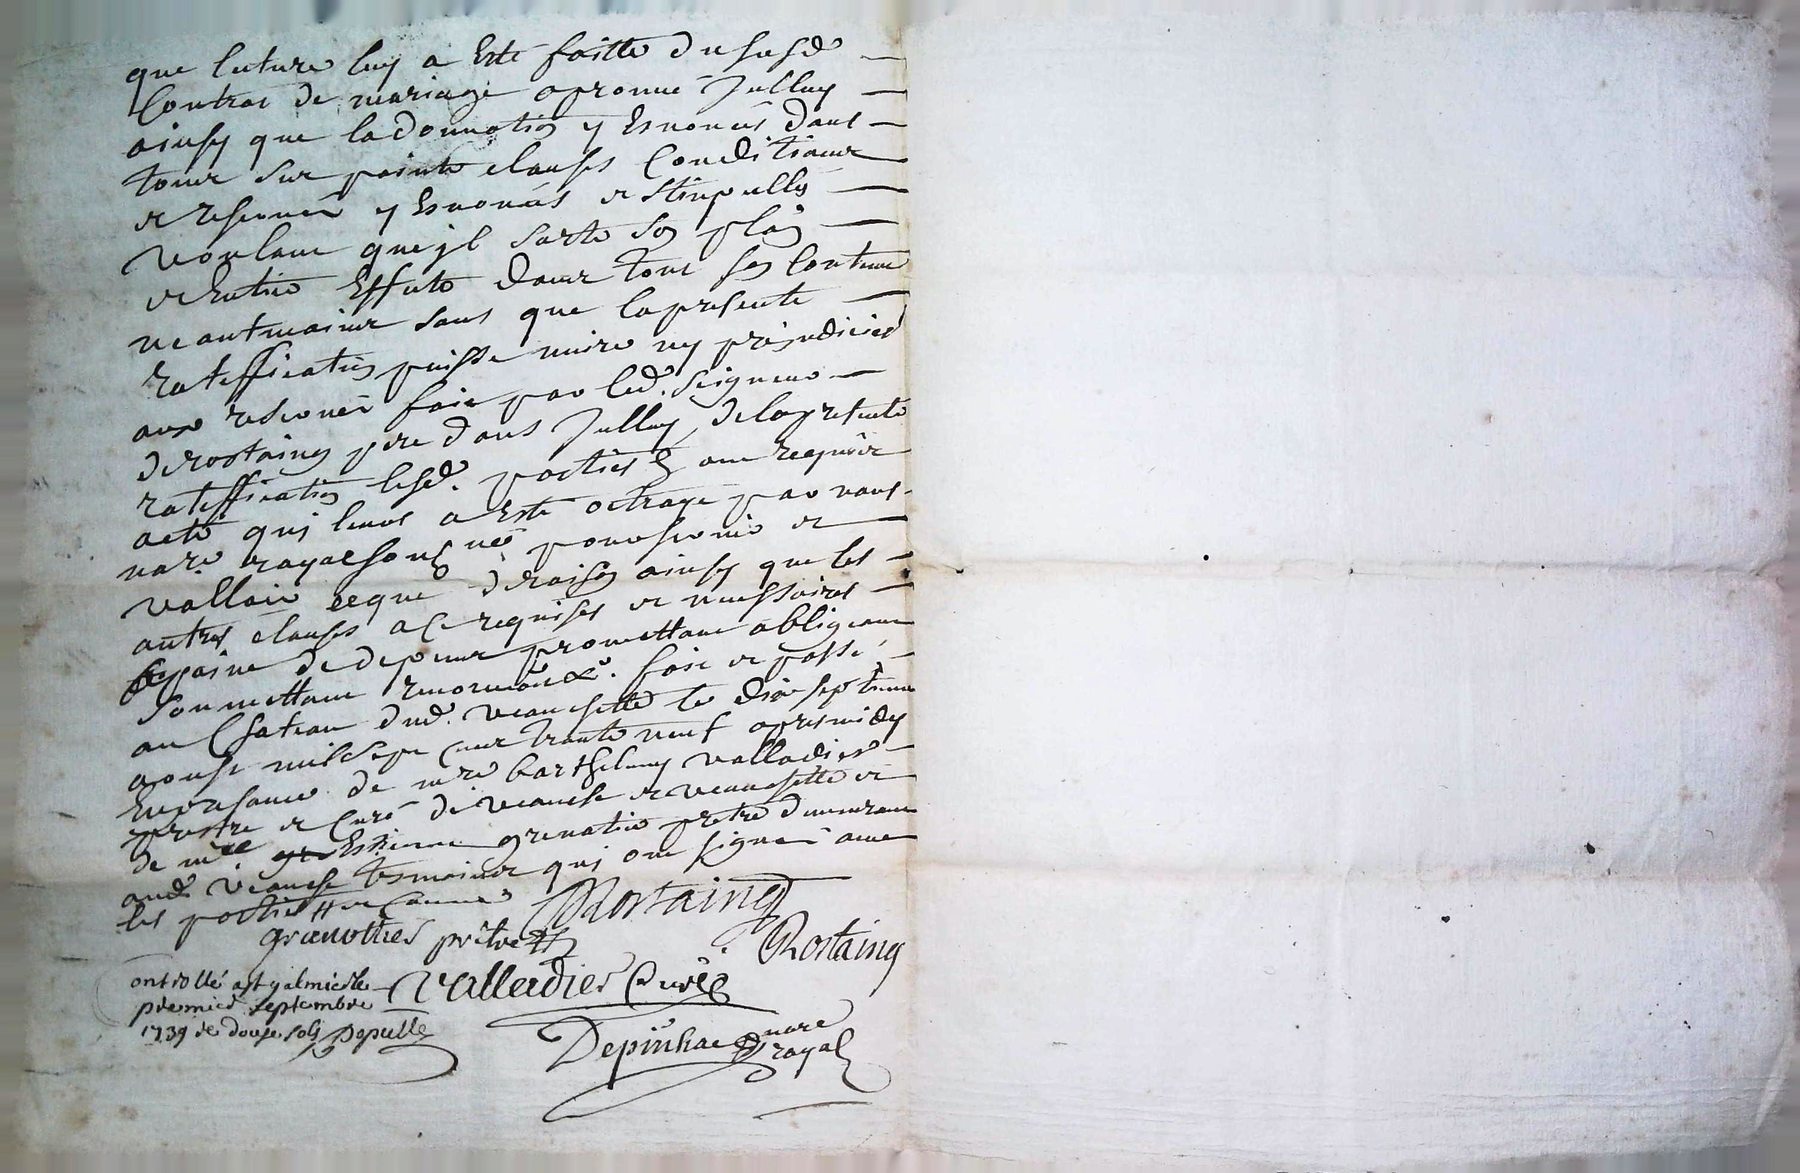 que lecture luy a Esté faitte du susd
Contrat de mariage aprouve Jcelluy
ainsy que la donnation y Esnoncés dans
tous ses points clauses Conditions
et reserves y Esnoncés et stipullés
voulant qu'jl sorte son plain
et Entier Effaits dans tout son Contenu
neantmoins sans que la presente
rateffication puisse nuire ny prejudicier
aux reserves fait par led. Seigneur
de rostaing pere dans Jcelluy, de la presente
rateffication lesd. parties ont requis
acte qui leurs a Esté octroyé par nous
nore. royal soussigné pour servir et
valloir ce que de raison ainsy que les
autres clauses a ce requises et necessaires
a peine de depens promettant obligeant
soumettant renonceant &. fait et passé
au Chateau dud. veauchette le dix septieme
aoust mil sept cent trante neuf apres midy
En presance de mre barthelemy valladier
prestre et Curé de veauche et veauchette et
de mre Estienne grenotier pretre demeurant
aud. veauche tesmoins qui ont signé avec
les parties
Rostaing
grenottier prêtre
Rostaing
Valladier Curé
ontrollé a st galmier le
premier septembre
1739 re douze sols Depuelle
Depinhac nore
royal